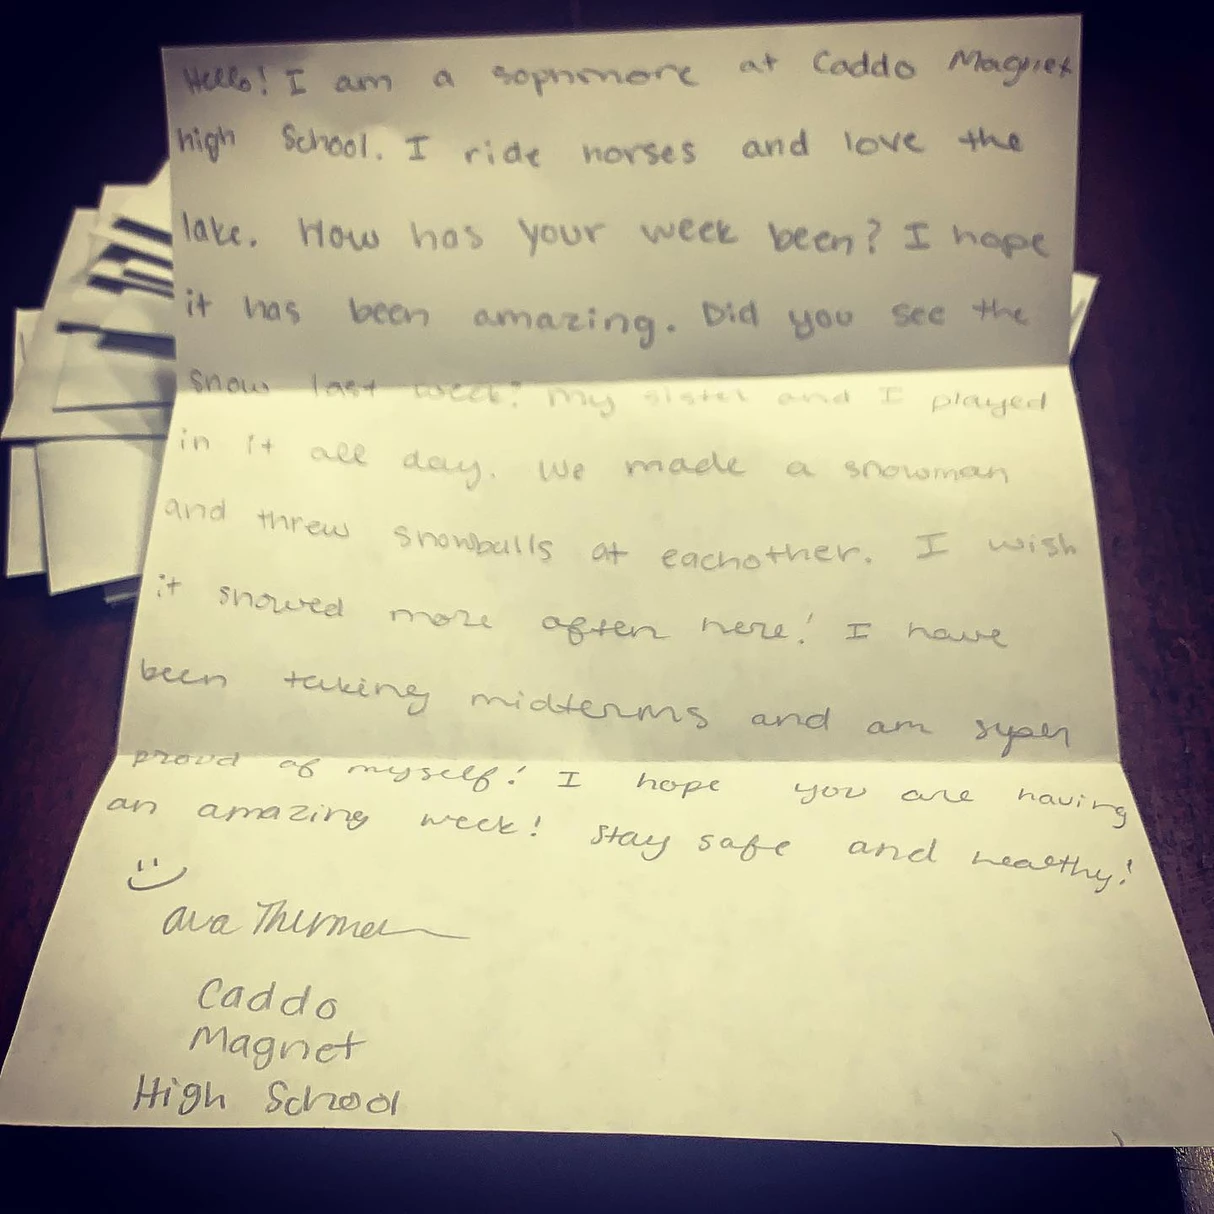 Hello! I am a sophmore at Caddo Magnet
high School. I ride horses and love the
lake. How has your week been? I hope
it has been amazing. Did you see the
snow last week? My sister and I played
in it all day. We made a snowman
and threw snowballs at eachother. I wish
it snowed more often here! I have
been taking midterms and am super
proud of myself! I hope you are having
an amazing week! Stay safe and healthy!
Ava
Caddo
Magnet
High School